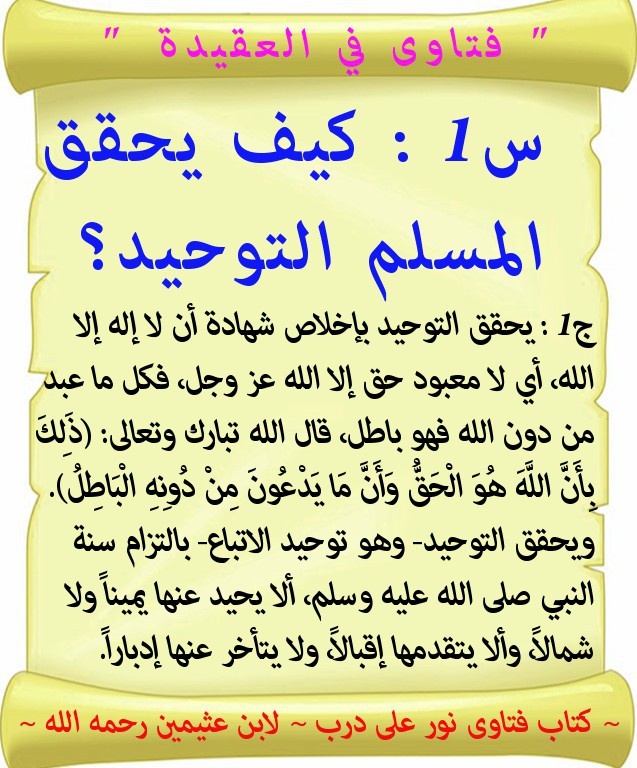 " فتاوى في العقيدة "
س1 : كيف يحقق
المسلم التوحيد؟
ج1 : يحقق التوحيد بإخلاص شهادة أن لا إله إلا
الله، أي لا معبود حق إلا الله عز وجل، فكل ما عبد
من دون الله فهو باطل، قال الله تبارك وتعالى: (ذَلِكَ
بِأَنَّ اللَّهَ هُوَ الْحَقُّ وَأَنَّ مَا يَدْعُونَ مِنْ دُونِهِ الْبَاطِلُ).
ويحقق التوحيد- وهو توحيد الاتباع- بالتزام سنة
النبي صلى الله عليه وسلم، ألا يحيد عنها يميناً ولا
شمالاً، وألا يتقدمها إقبالاً، ولا يتأخر عنها إدباراً.
~ كتاب فتاوى نور على درب ~ لابن عثيمين رحمه الله ~